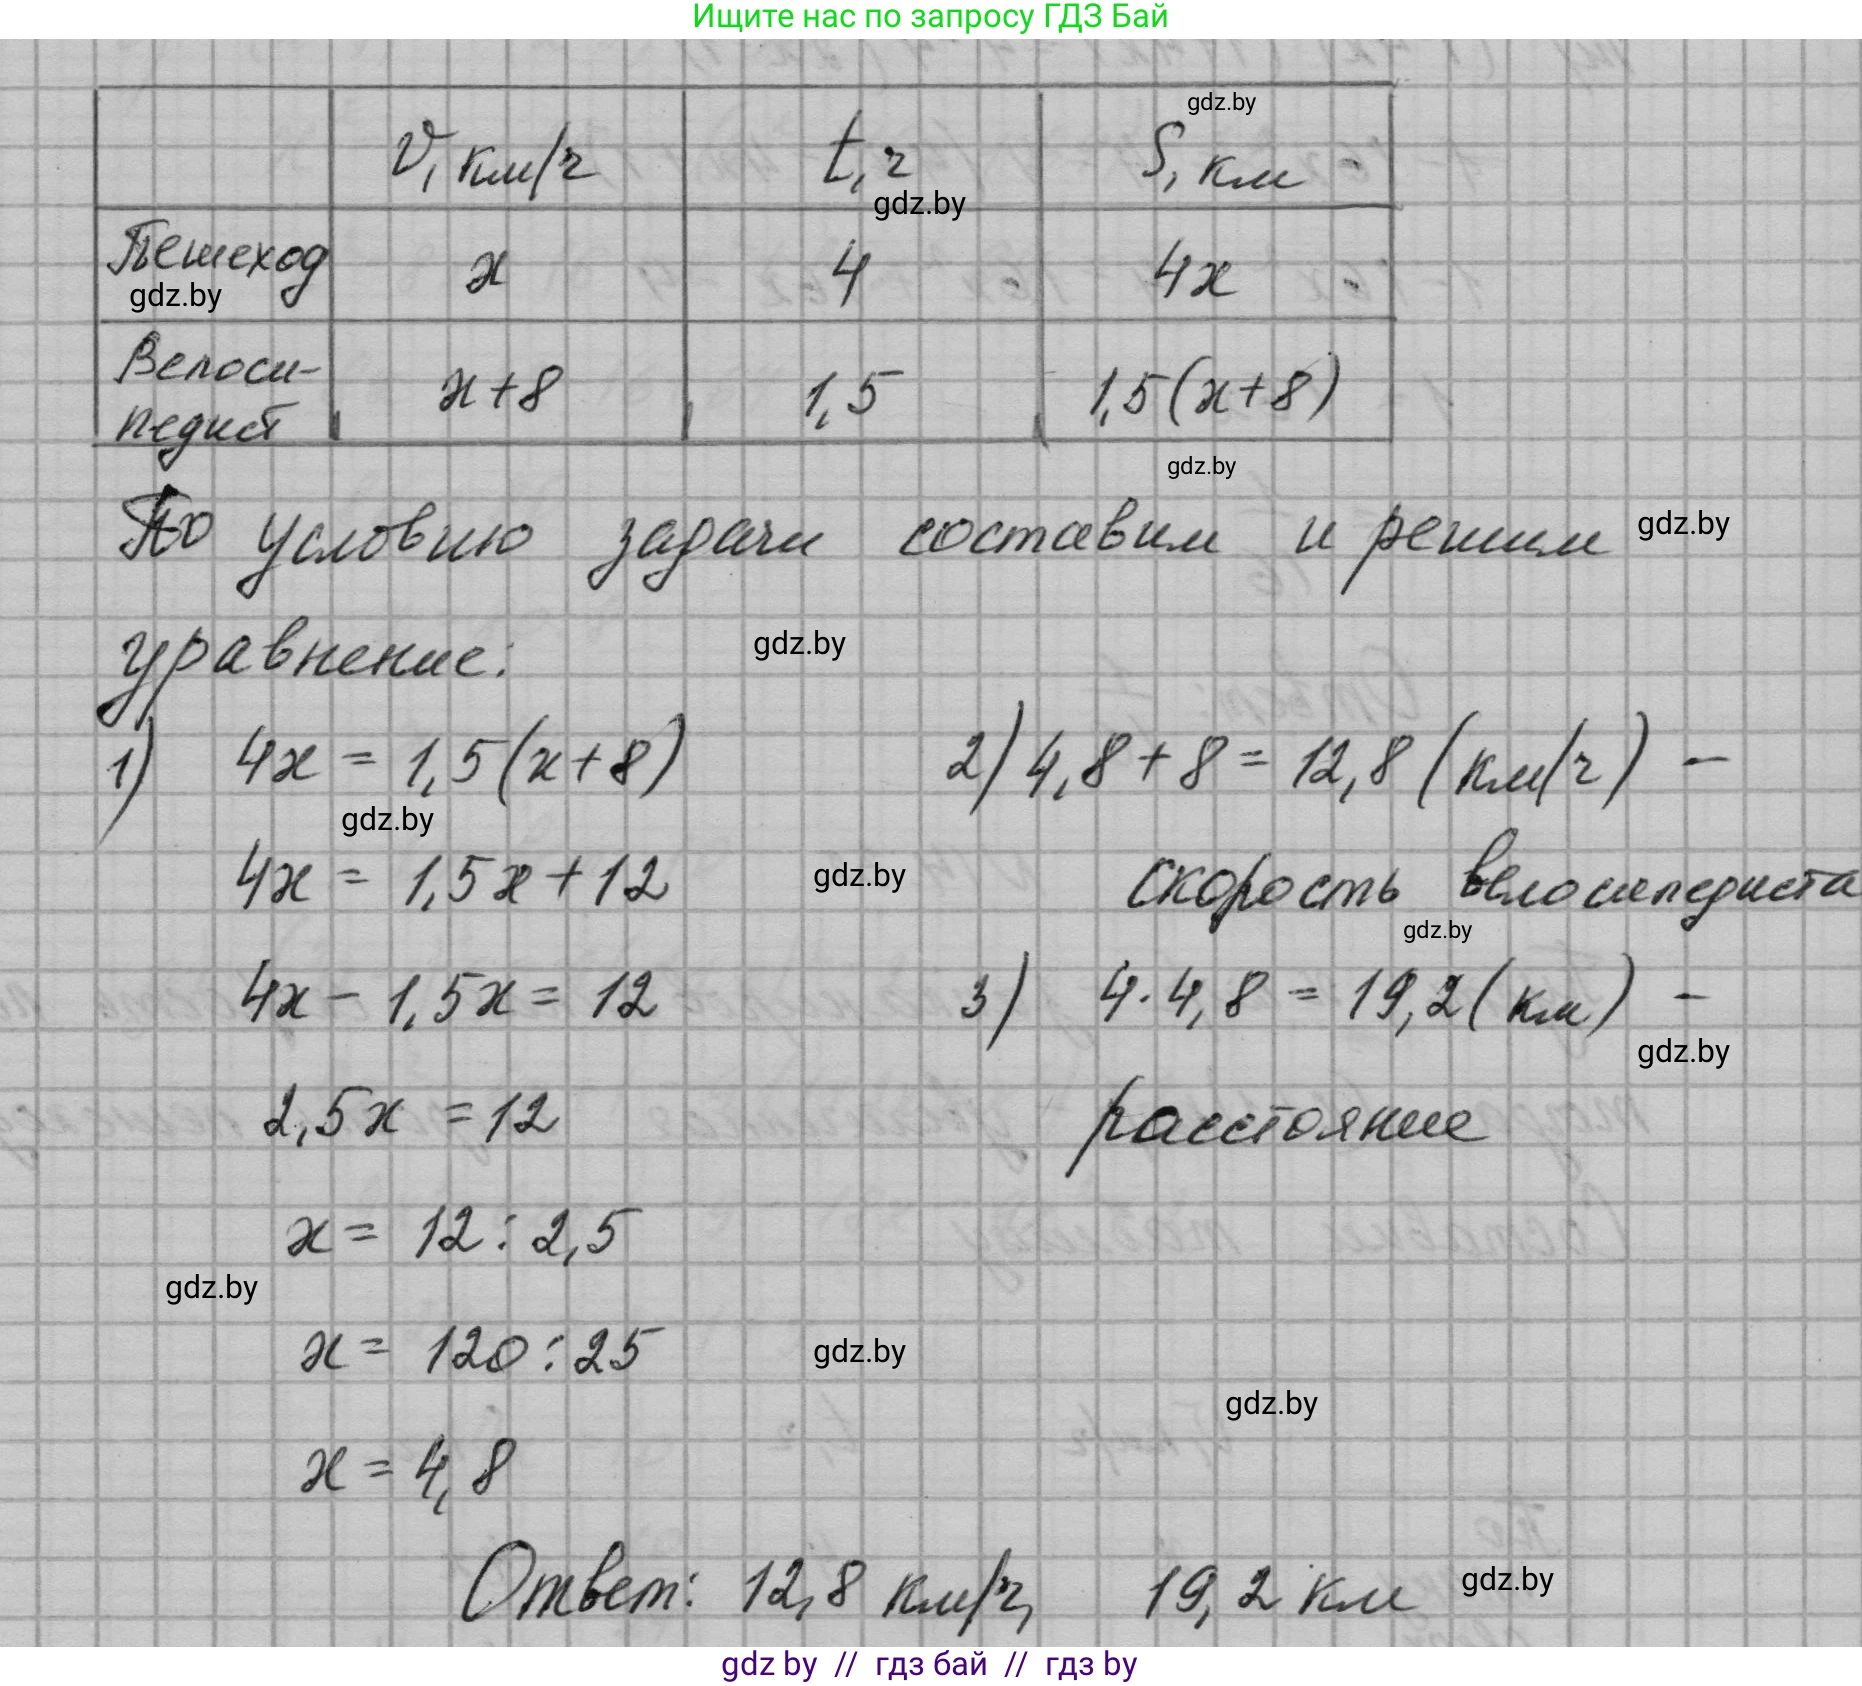 Ищите нас по запросу ГДЗ Бай
gdz.by
V, км/ч t, ч S, км
gdz.by
Пешеход x 4 4x
gdz.by
Велоси-
педист x+8 1,5 1,5(x+8)
gdz.by
По условию задачи составим и решим gdz.by
уравнение: gdz.by
1) 4x = 1,5(x+8)
gdz.by
4x = 1,5x+12
4x - 1,5x = 12
2,5x = 12
x = 12 : 2,5
gdz.by
x = 120 : 25
x = 4,8
2) 4,8+8 = 12,8 (км/ч) -
gdz.by
скорость велосипедиста
gdz.by
3) 4·4,8 = 19,2 (км) -
gdz.by
расстояние
gdz.by
gdz.by
Ответ: 12,8 км/ч, 19,2 км gdz.by
gdz by // гдз бай // гдз by